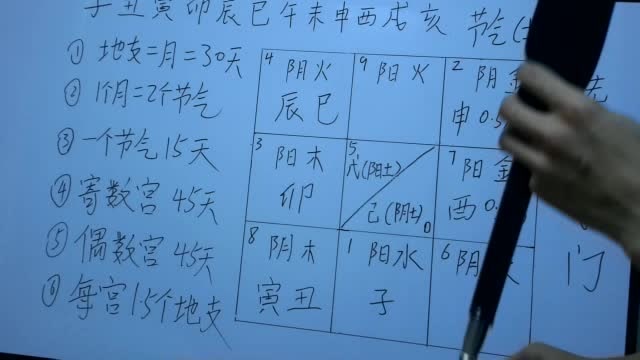 子丑寅卯辰巳午未申酉戌亥 节气
① 地支=月=30天
② 1个月=2个节气
③ 一个节气15天
④ 寄数宫 45天
⑤ 偶数宫 45天
⑥ 每宫1.5个地支
4 阴火
辰巳
9 阳火
2 阴金
申0.5
3 阳木
卯
5
戊(阳土)
己(阴土)
0
7 阳金
酉
8 阴木
寅丑
1 阳水
子
6 阴
门